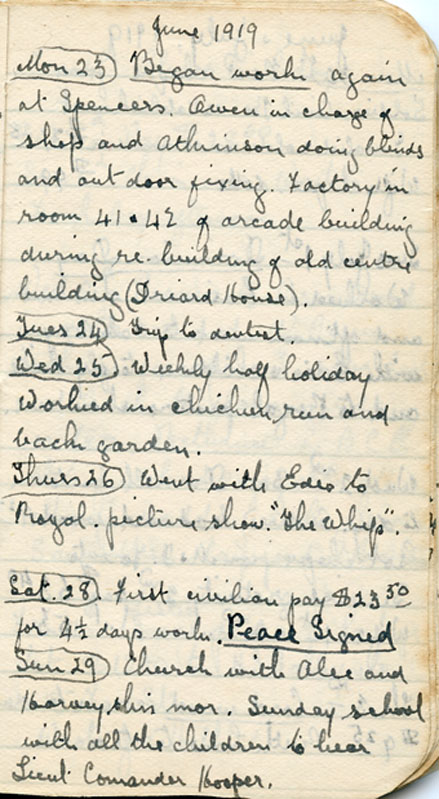 June 1919
Mon 23 Began work again
at Spencers. Owen in charge of
shop and Atkinson doing blinds
and out door fixing. Factory in
room 41 & 42 of arcade building
during re. building of old centre
building (Driard House).
Tues 24 Trip to dentist.
Wed 25 Weekly half holiday
Worked in chicken run and
back garden.
Thurs 26 Went with Edie to
Royal. picture show. "The Whip".
Sat. 28 First civilian pay $23 50
for 4½ days work. Peace Signed
Sun 29 Church with Alec and
Harvey this mor. Sunday school
with all the children to hear
Lieut. Comander Hooper.